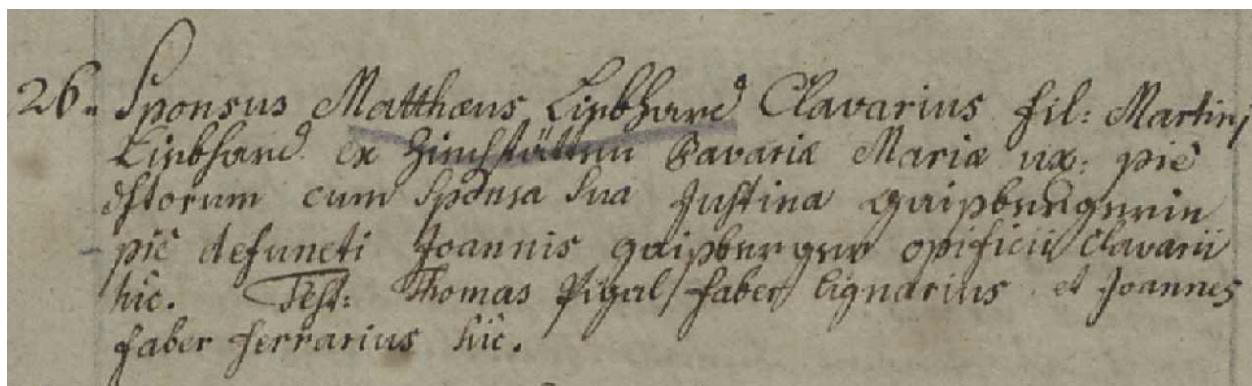 26. Sponsus Matthæus Liebhard Clavarius fil: Martini
Liebhard ex Bavariæ Mariæ ux: piè
dftorum cum Sponsa Sua Justina gaisbergerin
piè defuncti Joannis gaisberger opificii Clavarii
hic. Test: Thomas Pigal faber lignarius et Joannes
faber ferrarius hic.